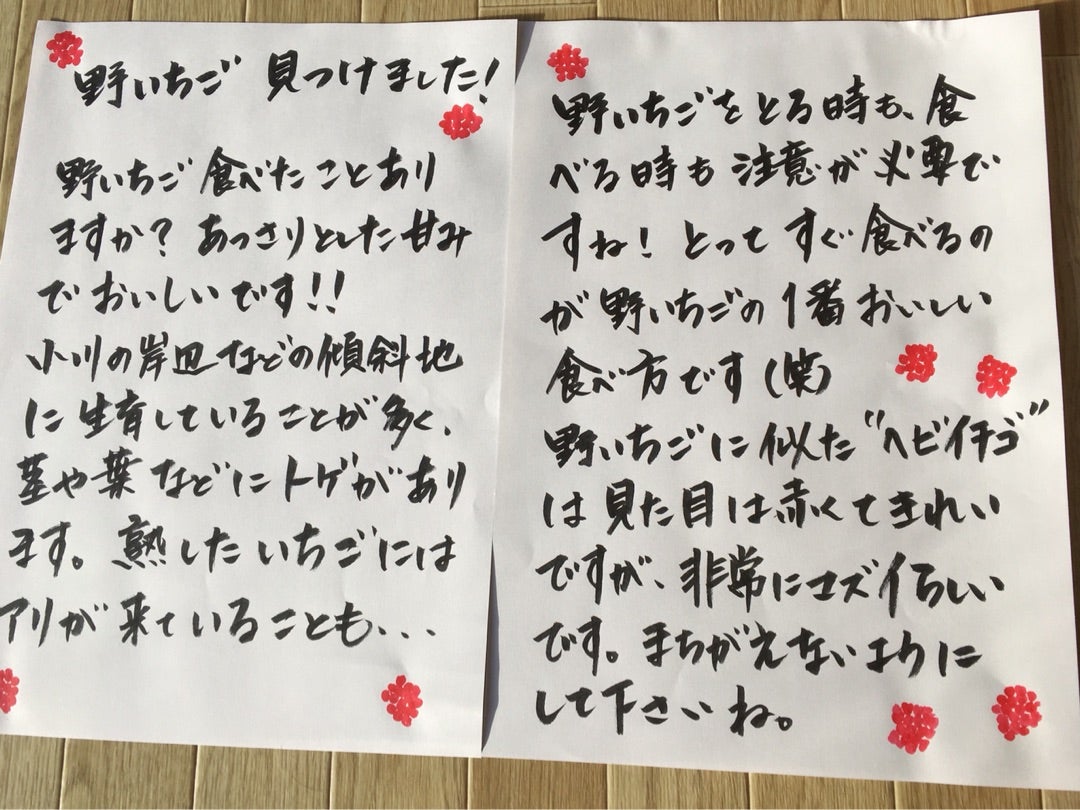 野いちご 見つけました!
野いちご 食べたことあり
ますか? あっさりとした甘み
でおいしいです!!
小川の岸辺などの傾斜地
に生育していることが多く、
茎や葉などにトゲがあり
ます。熟したいちごには
アリが来ていることも...
野いちごをとる時も、食
べる時も注意が必要で
すね! とってすぐ食べるの
が野いちごの1番おいしい
食べ方です(笑)
野いちごに似た"ヘビイチゴ"
は見た目は赤くてきれい
ですが、非常にマズイらしい
です。まちがえないように
して下さいね。